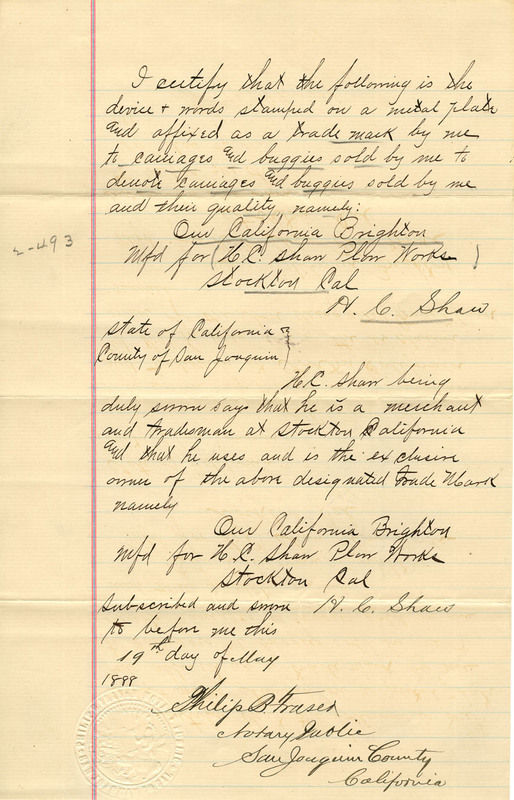 I certify that the following is the
device + words stamped on a metal plate
and affixed as a trade mark by me
to carriages and buggies sold by me to
denote carriages and buggies sold by me
and their quality, namely:
Our California Brighton
Mfd for (H.C. Shaw Plow Works)
Stockton Cal
H. C. Shaw
2-493
State of California
County of San Joaquin
H.C. Shaw being
duly sworn says that he is a merchant
and tradesman at Stockton California
and that he uses and is the exclusive
owner of the above designated Trade Mark
namely
Our California Brighton
Mfd for H.C. Shaw Plow Works
Stockton Cal
Subscribed and sworn H. C. Shaw
to before me this
19th day of May
1888
Philip B Fraser
Notary Public
San Joaquin County
California